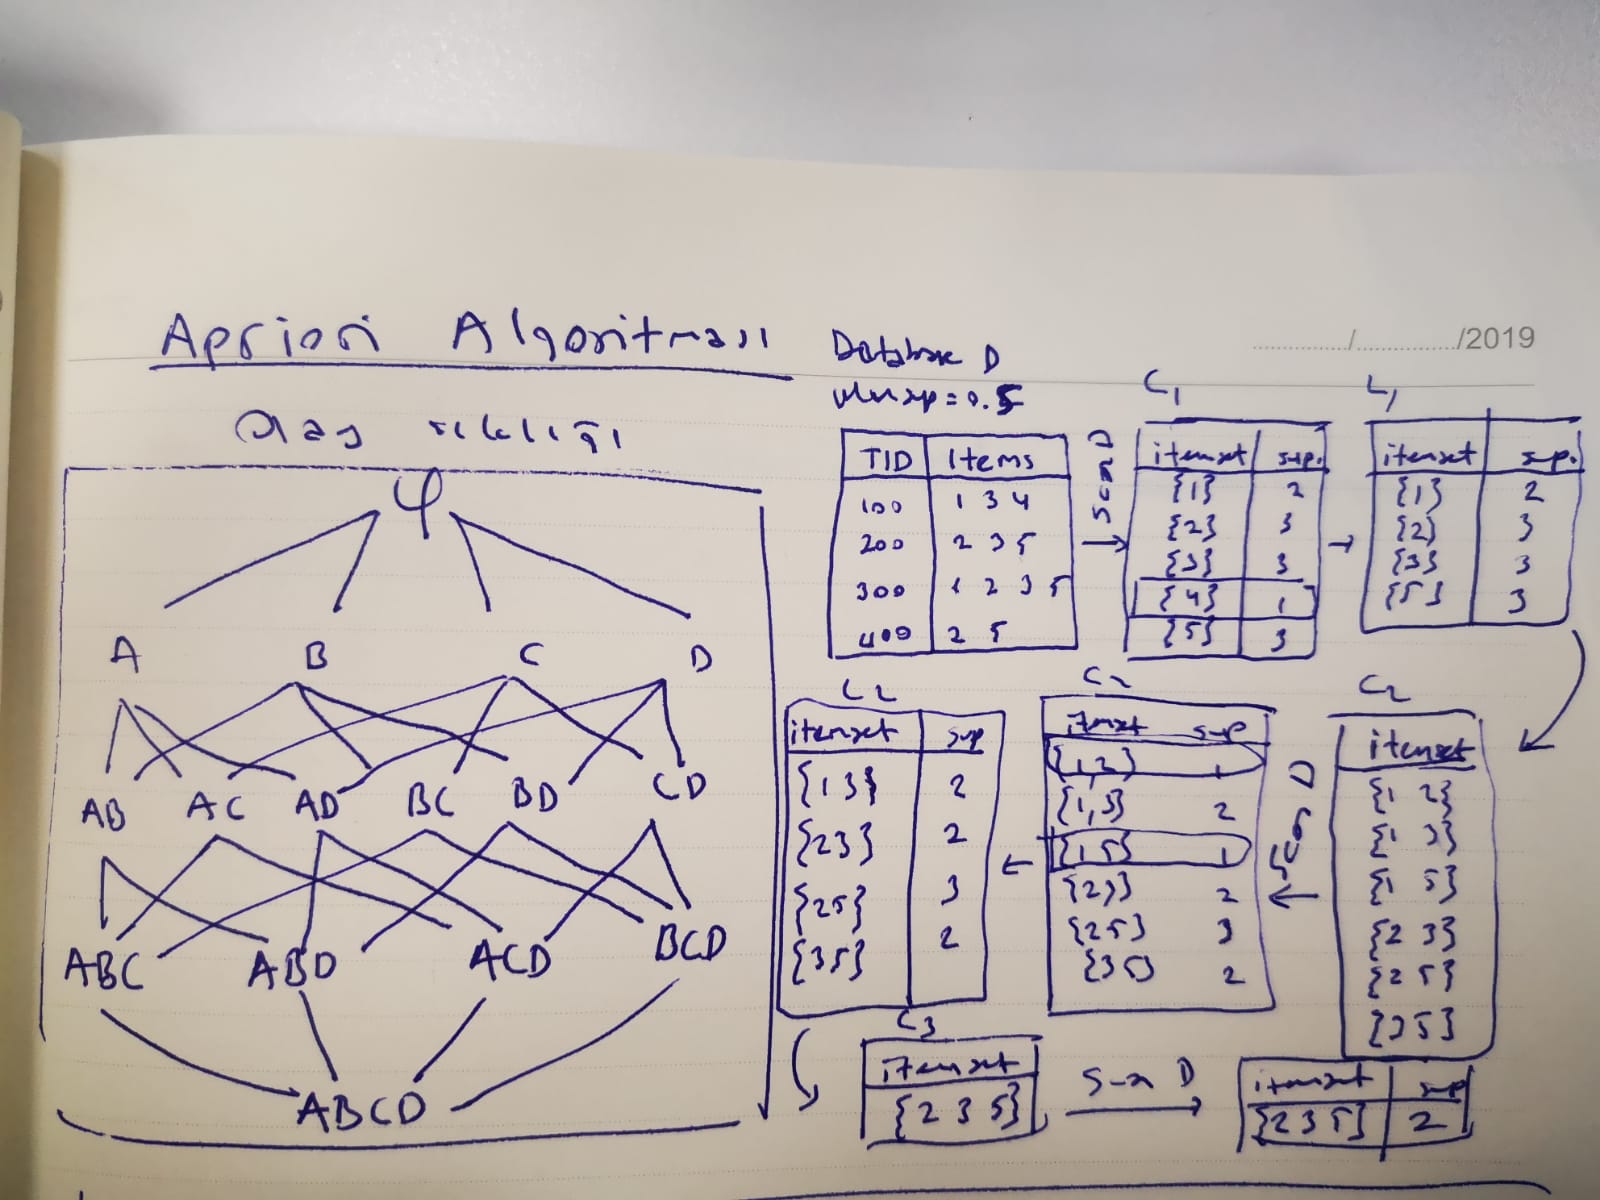 Apriori Algoritması
Olay sıklığı
φ
A B C D
AB AC AD BC BD CD
ABC ABD ACD BCD
ABCD
............../.............../2019
Database D
Minsup = 0.5
TID Items
100 1 3 4
200 2 3 5
300 1 2 3 5
400 2 5
Scan D
C1
itemset sup.
{1} 2
{2} 3
{3} 3
{4} 1
{5} 3
L1
itemset sup.
{1} 2
{2} 3
{3} 3
{5} 3
C2
itemset
{1 2}
{1 3}
{1 5}
{2 3}
{2 5}
{3 5}
Scan D
C2
itemset sup
{1,2} 1
{1,3} 2
{1 5} 1
{2 3} 2
{2 5} 3
{3 5} 2
L2
itemset sup
{1 3} 2
{2 3} 2
{2 5} 3
{3 5} 2
C3
itemset
{2 3 5}
Scan D
itemset sup
{2 3 5} 2